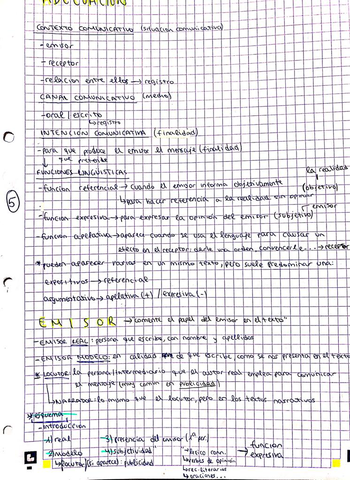 ADECUACIÓN
CONTEXTO COMUNICATIVO (situación comunicativa)
- emisor
- receptor
- relación entre ellos → registro
CANAL COMUNICATIVO (medio)
- oral / escrito
↳ registro
INTENCIÓN COMUNICATIVA (finalidad)
- Para que produce el emisor el mensaje (finalidad)
↓ que pretende
FUNCIONES LINGUISTICAS
la realidad
- función referencial → cuando el emisor informa objetivamente (objetivo)
↳ hacer referencia a la realidad sin opinión
emisor
- función expresiva → para expresar la opinión del emisor (subjetivo)
- función apelativa → aparece cuando se usa el lenguaje para causar un
efecto en el receptor: darle una orden, convencerle... → receptor
* pueden aparecer varias en un mismo texto, pero suele predominar una:
expositivos → referencial
argumentativo → apelativa (+) / expresiva (-)
5
EMISOR → "comente el papel del emisor en el texto"
- EMISOR REAL: persona que escribe, con nombre y apellidos
- EMISOR MODELO: en calidad de que escribe, como se nos presenta en el texto
* LOCUTOR: la persona/intermediario que el autor real emplea para comunicar
el mensaje (muy común en publicidad)
↳ NARRADOR: lo mismo que el locutor, pero en los textos narrativos
* esquema
- introducción
1) real
2) modelo
↳ locutor (si aparece): publicidad
3) presencia del emisor (1ª per.)
4) subjetividad
↳ léxico conn.
↳ verbos de opinión
↳ rec. literarios
función
expresiva